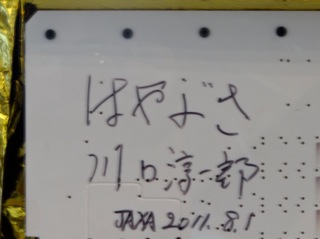 はやぶさ
川口淳一郎
JAXA 2011.8.1